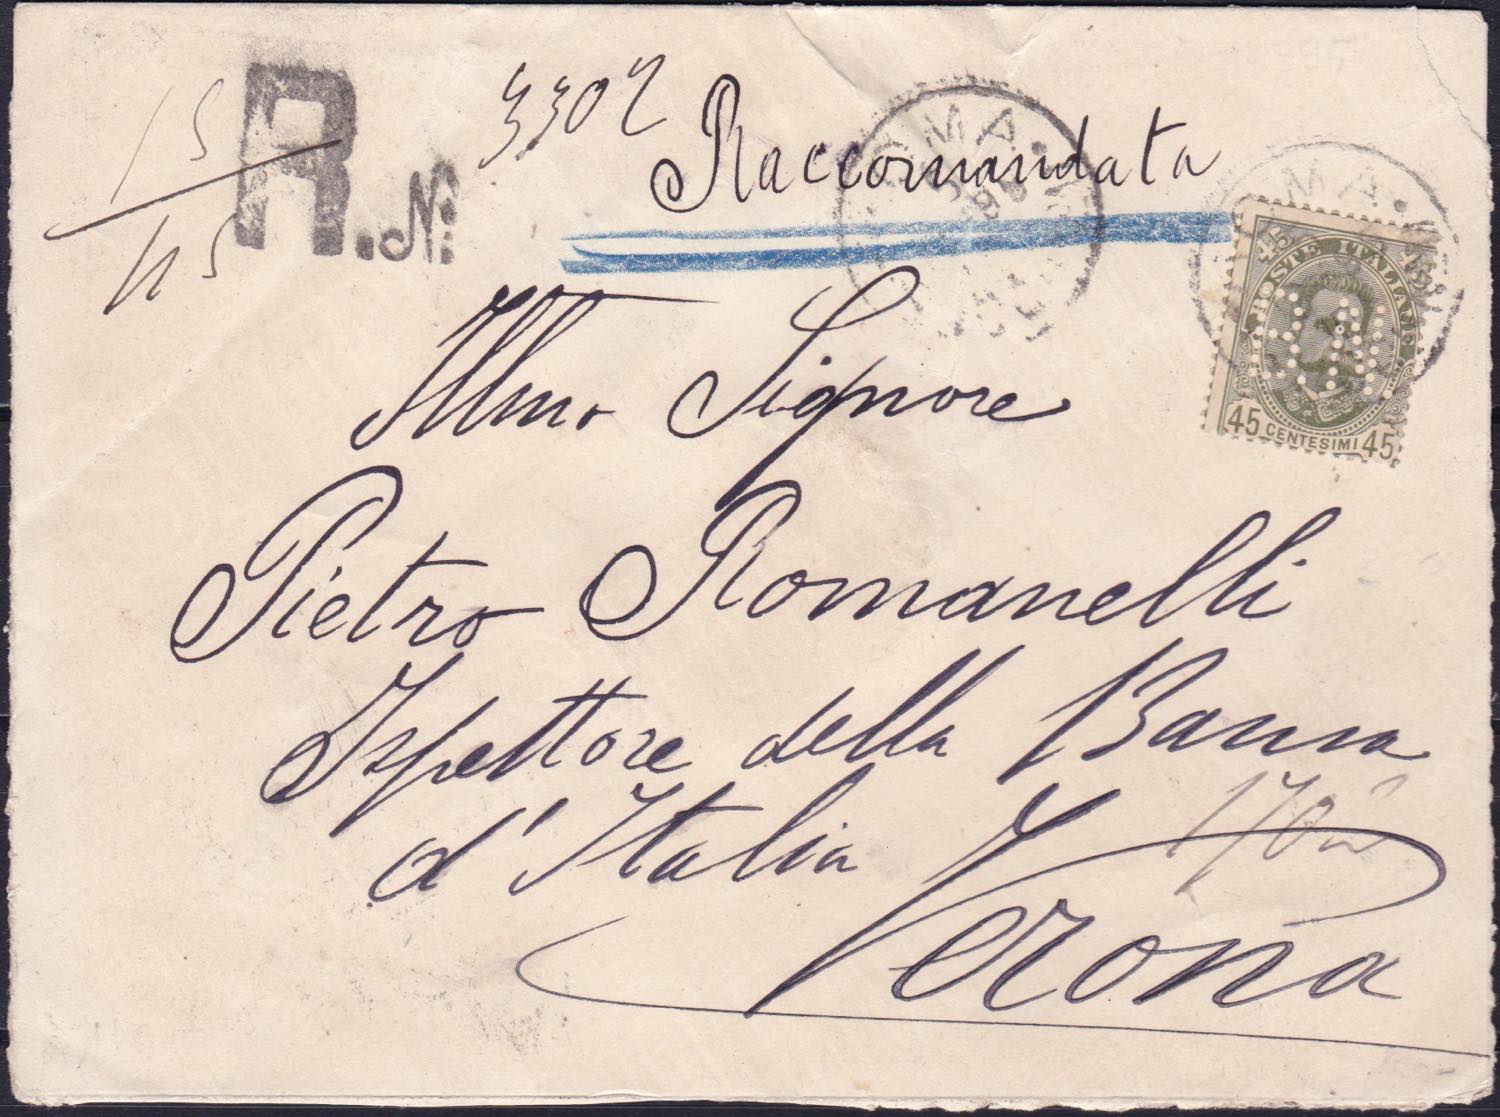 15
45
R. N:
3302
Raccomandata
ROMA
POSTE ITALIANE
45 45
45 CENTESIMI 45
Illmo Signore
Pietro Romanelli
Ispettore della Banca
d'Italia
Verona